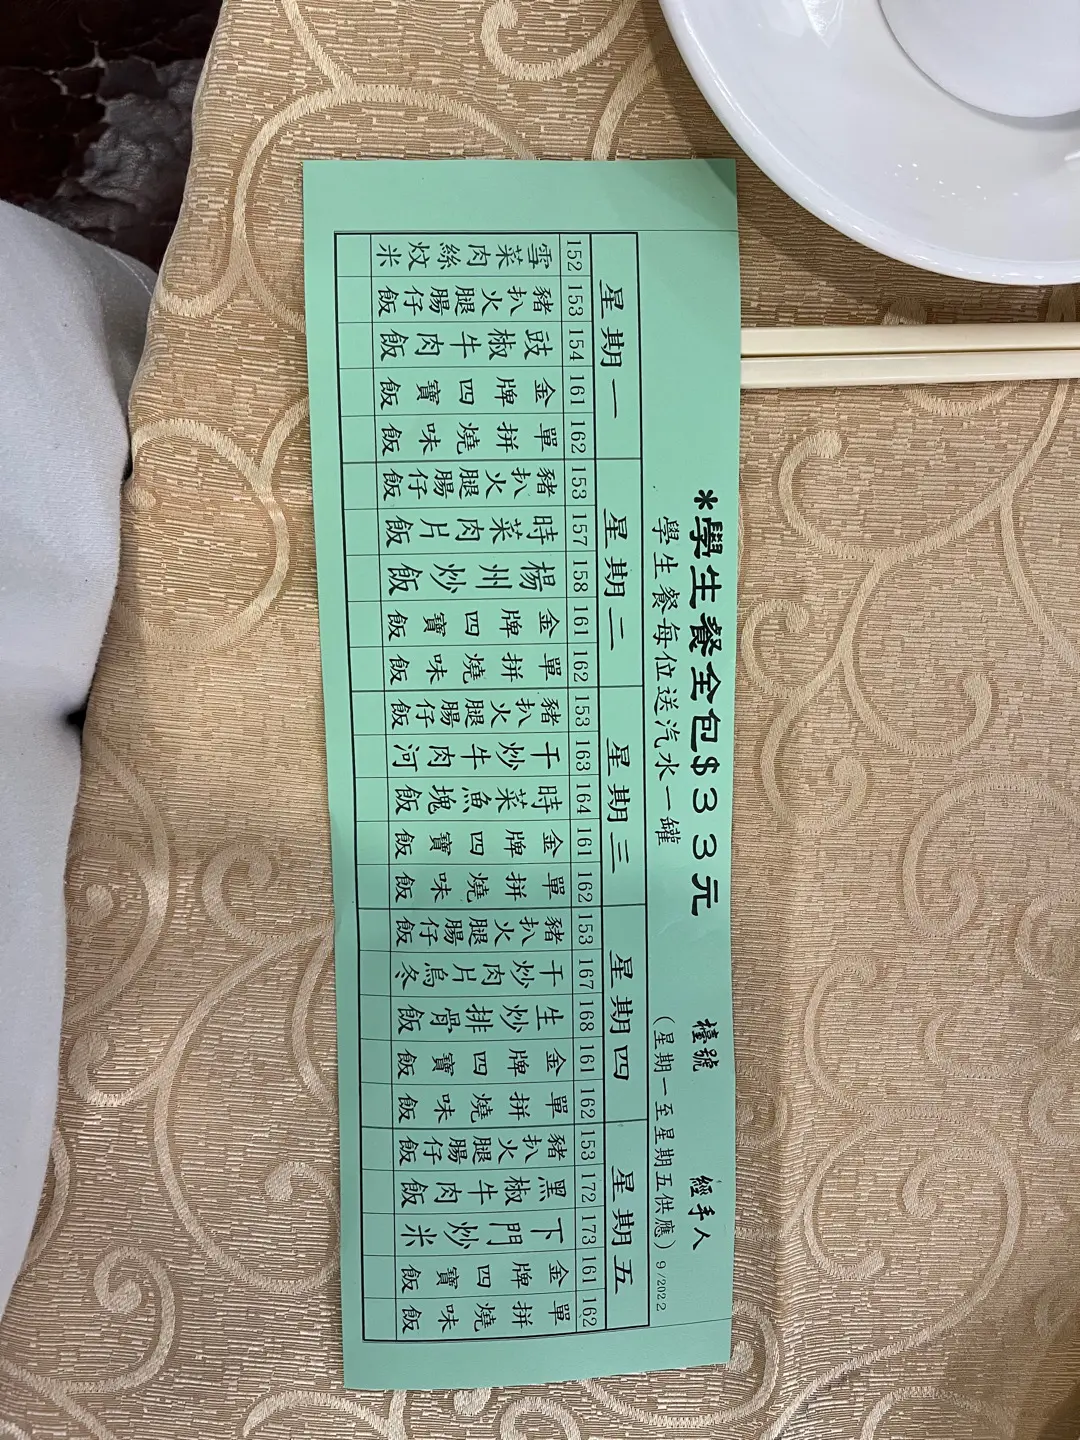 *學生餐全包$33元 檯號 經手人
學生餐每位送汽水一罐 (星期一至星期五供應) 9/2022
星期一
152 雪菜肉絲炆米
153 豬扒火腿腸仔飯
154 豉椒牛肉飯
161 金牌四寶飯
162 單拼燒味飯
星期二
153 豬扒火腿腸仔飯
157 時菜肉片飯
158 楊州炒飯
161 金牌四寶飯
162 單拼燒味飯
星期三
153 豬扒火腿腸仔飯
163 干炒牛肉河
164 時菜魚塊飯
161 金牌四寶飯
162 單拼燒味飯
星期四
153 豬扒火腿腸仔飯
167 干炒肉片烏冬
168 生炒排骨飯
161 金牌四寶飯
162 單拼燒味飯
星期五
153 豬扒火腿腸仔飯
172 黑椒牛肉飯
173 下門炒米
161 金牌四寶飯
162 單拼燒味飯